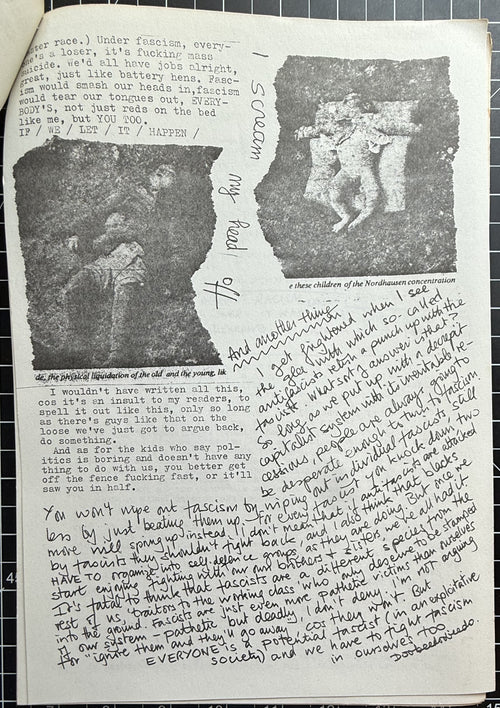 ter race.) Under fascism, every-
he's a loser, it's fucking mass
uicide. We'd all have jobs alright,
great, just like battery hens. Fasc-
ism would smash our heads in,fascism
would tear our tongues out, EVERY-
BODY'S, not just reds on the bed
like me, but YOU TOO.
IF / WE / LET / IT / HAPPEN /
I scream my head off
e these children of the Nordhausen concentration
de, the physical liquidation of the old and the young, lik
I wouldn't have written all this,
cos it's an insult to my readers, to
spell it out like this, only so long
as there's guys like that on the
loose we've just got to argue back,
do something.
And as for the kids who say pol-
itics is boring and doesn't have any
thing to do with us, you better get
off the fence fucking fast, or it'll
saw you in half.
And another thing
I get frightened when I see
the glee with which so-called
antifascists relish a punch up with the
fascists. What sort of answer is that?
So long as we put up with a decrepit
capitalist system with it's inevitable re-
cessions, people are always going to
be desperate enough to turn to fascism.
You won't wipe out fascism by wiping out individual fascists, still
less by just beating them up - for every fascist you knock down, two
more will spring up instead. I don't mean that if anti fascists are attacked
by fascists they shouldn't fight back and I also think that blacks
HAVE TO organise into self-defence groups, as they are doing. But once we
start enjoying fighting with our own brothers & sisters we've all had it.
It's fatal to think that fascists are a different species from the
rest of us, 'traitors to the working class who only deserve to be stamped
into the ground. Fascists are just even more pathetic victims than ourselves
of our system - pathetic but deadly, I don't deny. I'm not arguing
for "ignore them and they'll go away", cos they won't. But
EVERYONE is a potential fascist (in an exploitative
society) and we have to fight fascism
in ourselves too.